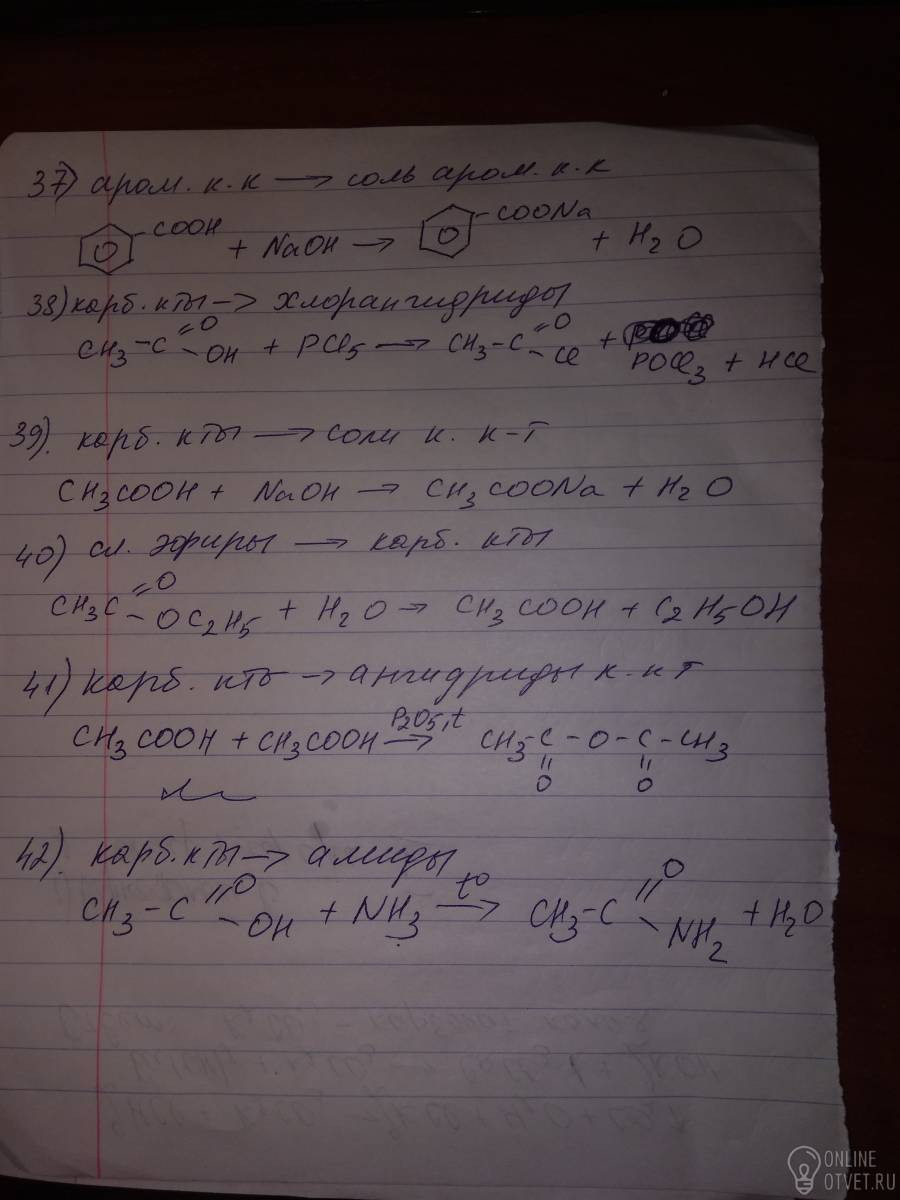 37) аром. к. к → соль аром. к. к
COOH + NaOH → COONa + H2O
38) карб. кты → хлорангидриды
CH3-C =O -OH + PCl5 → CH3-C =O -Cl + POCl3 + HCl
39). карб. кты → соли к. к-т
CH3COOH + NaOH → CH3COONa + H2O
40) сл. эфиры → карб. кты
CH3C =O -OC2H5 + H2O → CH3COOH + C2H5OH
41) карб. кты → ангидриды к. к т
CH3COOH + CH3COOH P2O5, t → CH3-C-O-C-CH3
=O =O
42). карб. кты → амиды
CH3-C =O -OH + NH3 t° → CH3-C =O -NH2 + H2O
ONLINE
OTVET.RU